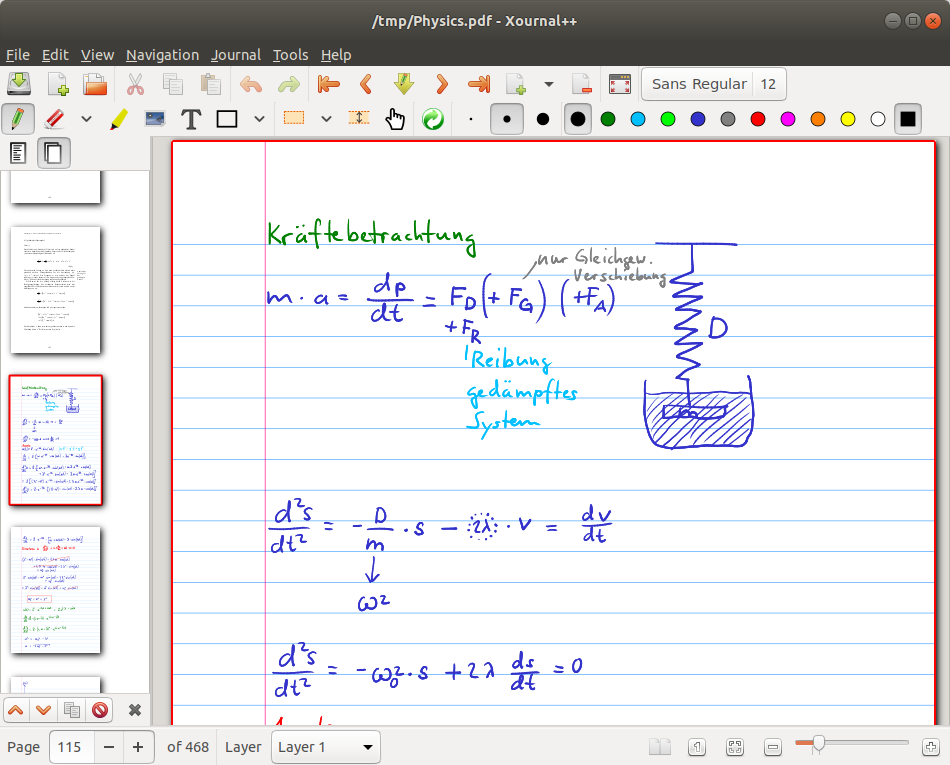 /tmp/Physics.pdf - Xournal++
File Edit View Navigation Journal Tools Help
Sans Regular 12
Kräftebetrachtung
nur Gleichgew.
Verschiebung
m · a = dp/dt = F_D (+ F_G) (+F_A)
+ F_R
Reibung
gedämpftes
System
D
d²s/dt² = - D/m · s - 2λ · v = dv/dt
↓
ω²
d²s/dt² = -ω₀² · s + 2λ ds/dt = 0
Page 115 of 468 Layer Layer 1